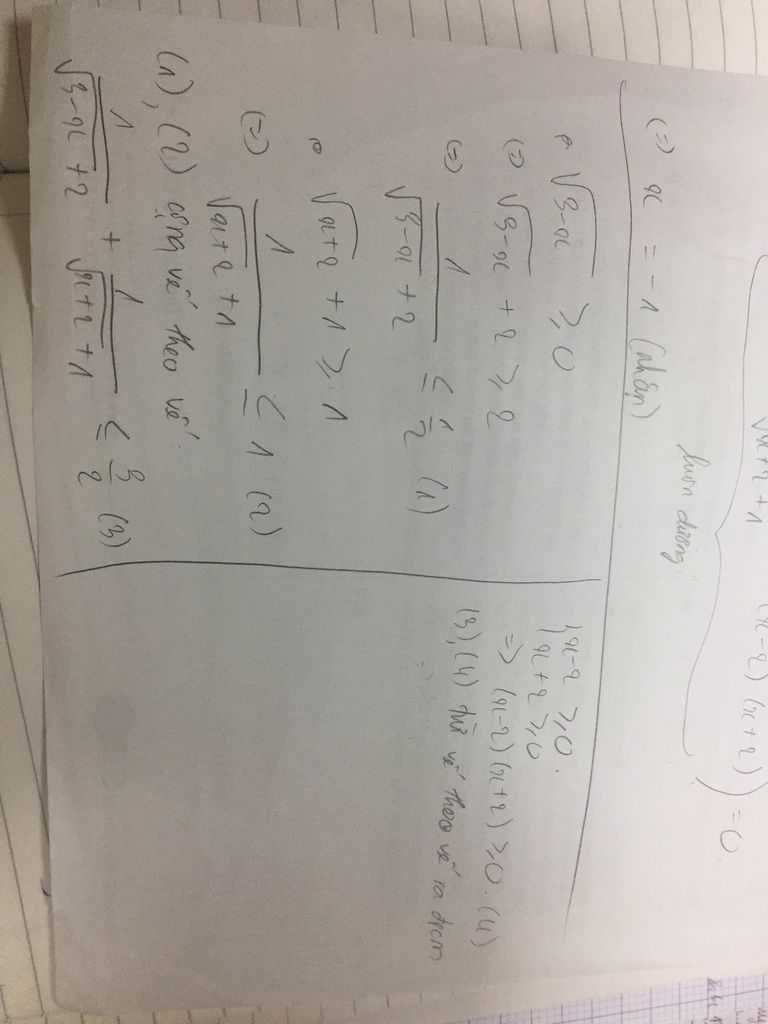 √x+2 + 1 (x-2)(x+2) ) = 0
luôn dương.
(=) x = -1 (nhận)
√3-x ≥ 0
(=) √3-x + 2 ≥ 2
(=) 1/(√3-x + 2) ≤ 1/2 (1)
√x+2 + 1 ≥ 1
(=) 1/(√x+2 + 1) ≤ 1 (2)
(1), (2) cộng vế theo vế.
1/(√3-x + 2) + 1/(√x+2 + 1) ≤ 3/2 (3)
{x-2 ≥ 0.
x+2 ≥ 0
=> (x-2)(x+2) ≥ 0. (4)
(3), (4) trừ vế theo vế ra đpcm